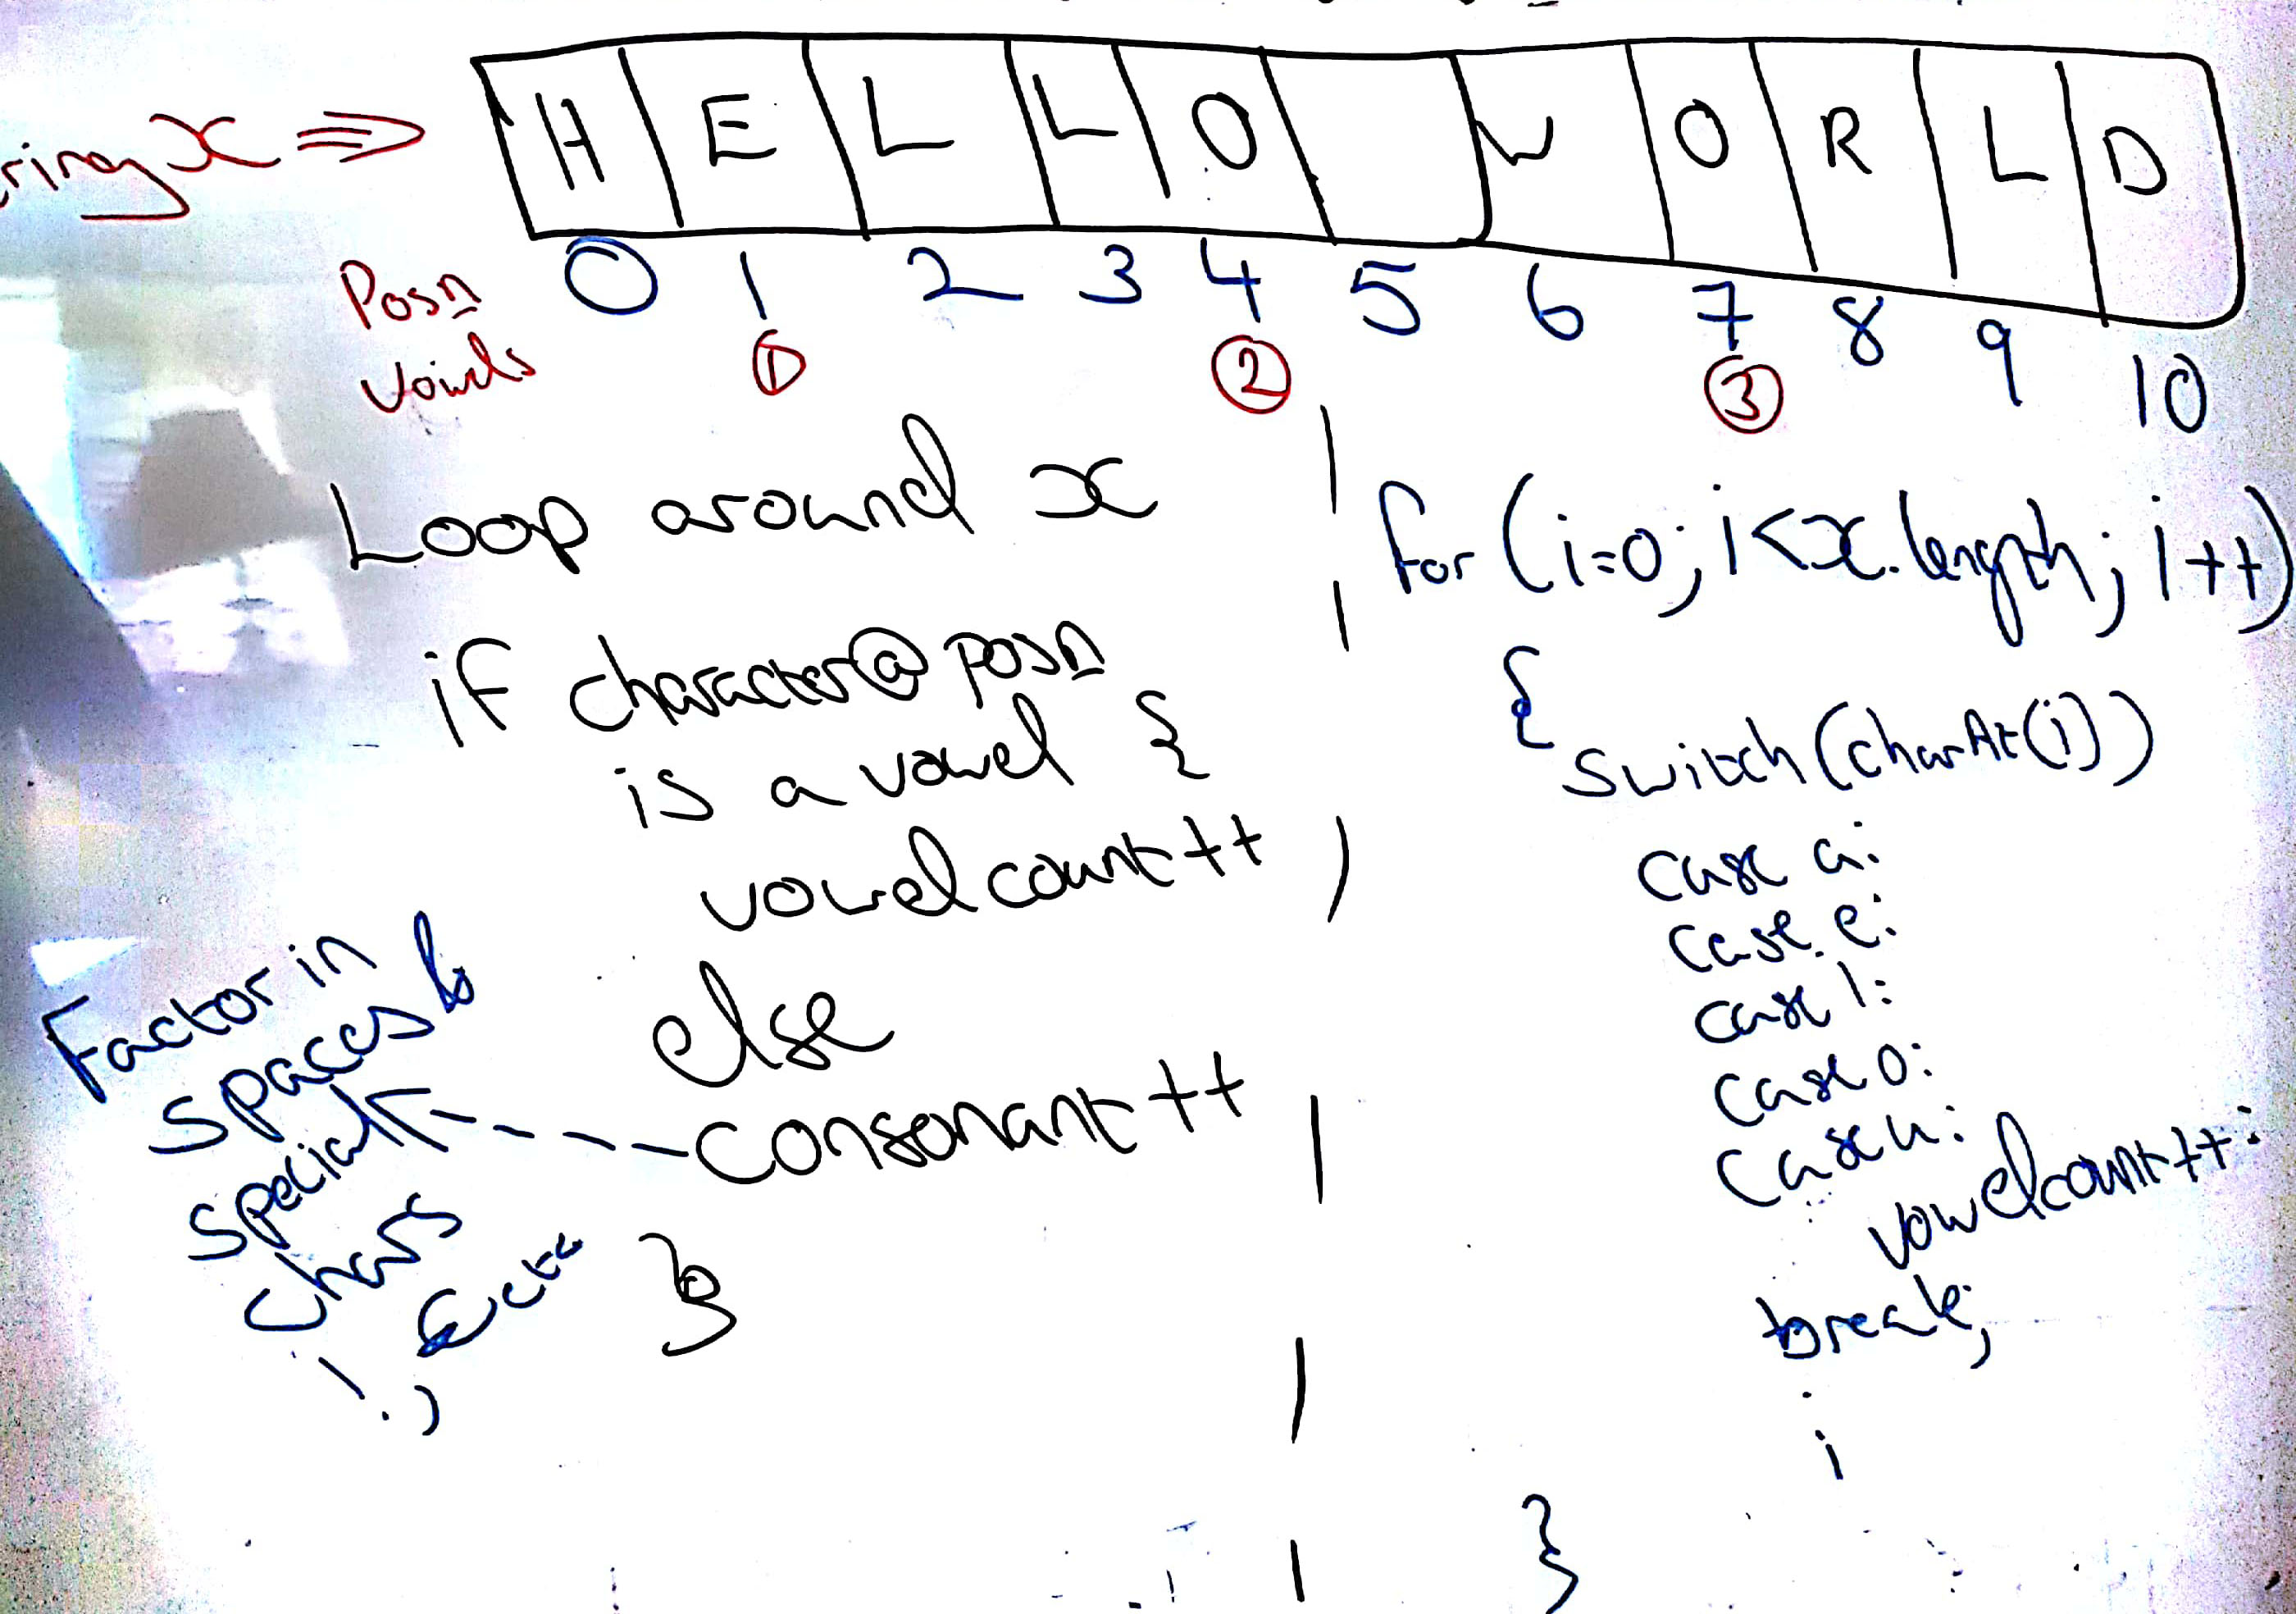 ring x ⇒
H E L L O W O R L D
Posn 0 1 2 3 4 5 6 7 8 9 10
Vowels ① ② ③
Loop around x
if character@posn
is a vowel {
vowelcount++
else
consonant++
}
Factor in
spaces &
special
chars
! . , & etc
for (i=0; i<x.length; i++)
{
switch(charAt(i))
case a:
case e:
case i:
case o:
case u:
vowelcount++;
break;
}